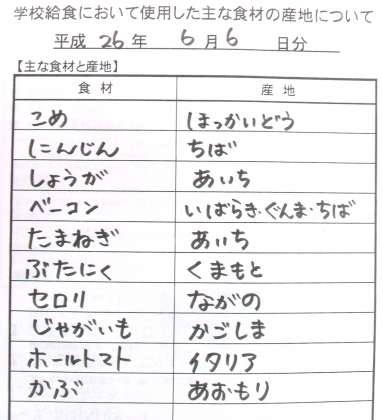 学校給食において使用した主な食材の産地について
平成 26 年 6 月 6 日分
【主な食材と産地】
食材 産地
こめ ほっかいどう
にんじん ちば
しょうが あいち
ベーコン いばらき・ぐんま・ちば
たまねぎ あいち
ぶたにく くまもと
セロリ ながの
じゃがいも かごしま
ホールトマト イタリア
かぶ あおもり